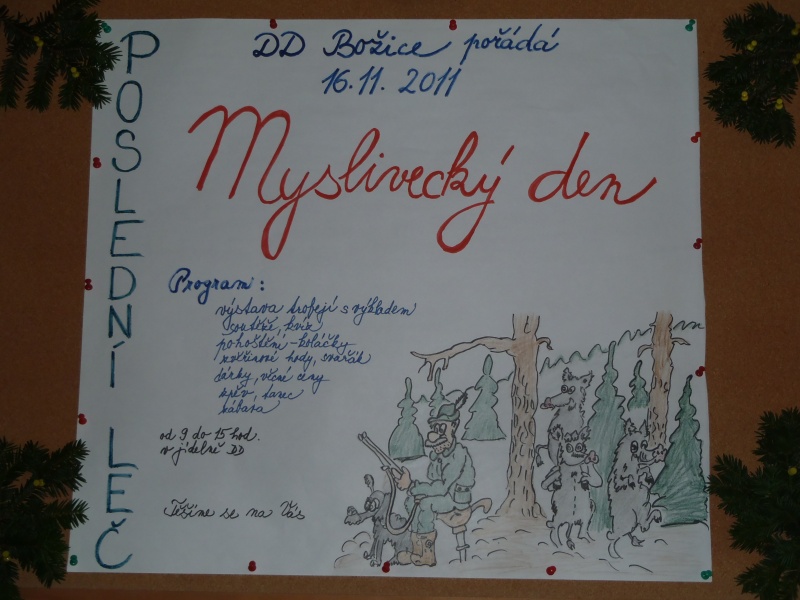 POSLEDNÍ LEČ
DD Božice pořádá
16.11. 2011
Myslivecký den
Program:
výstava trofejí s výkladem
soutěže, kvíz
pohoštění - koláčky
zvěřinové hody, svařák
dárky, věcné ceny
zpěv, tanec
zábava
od 9 do 15 hod.
v jídelně DD
Těšíme se na Vás